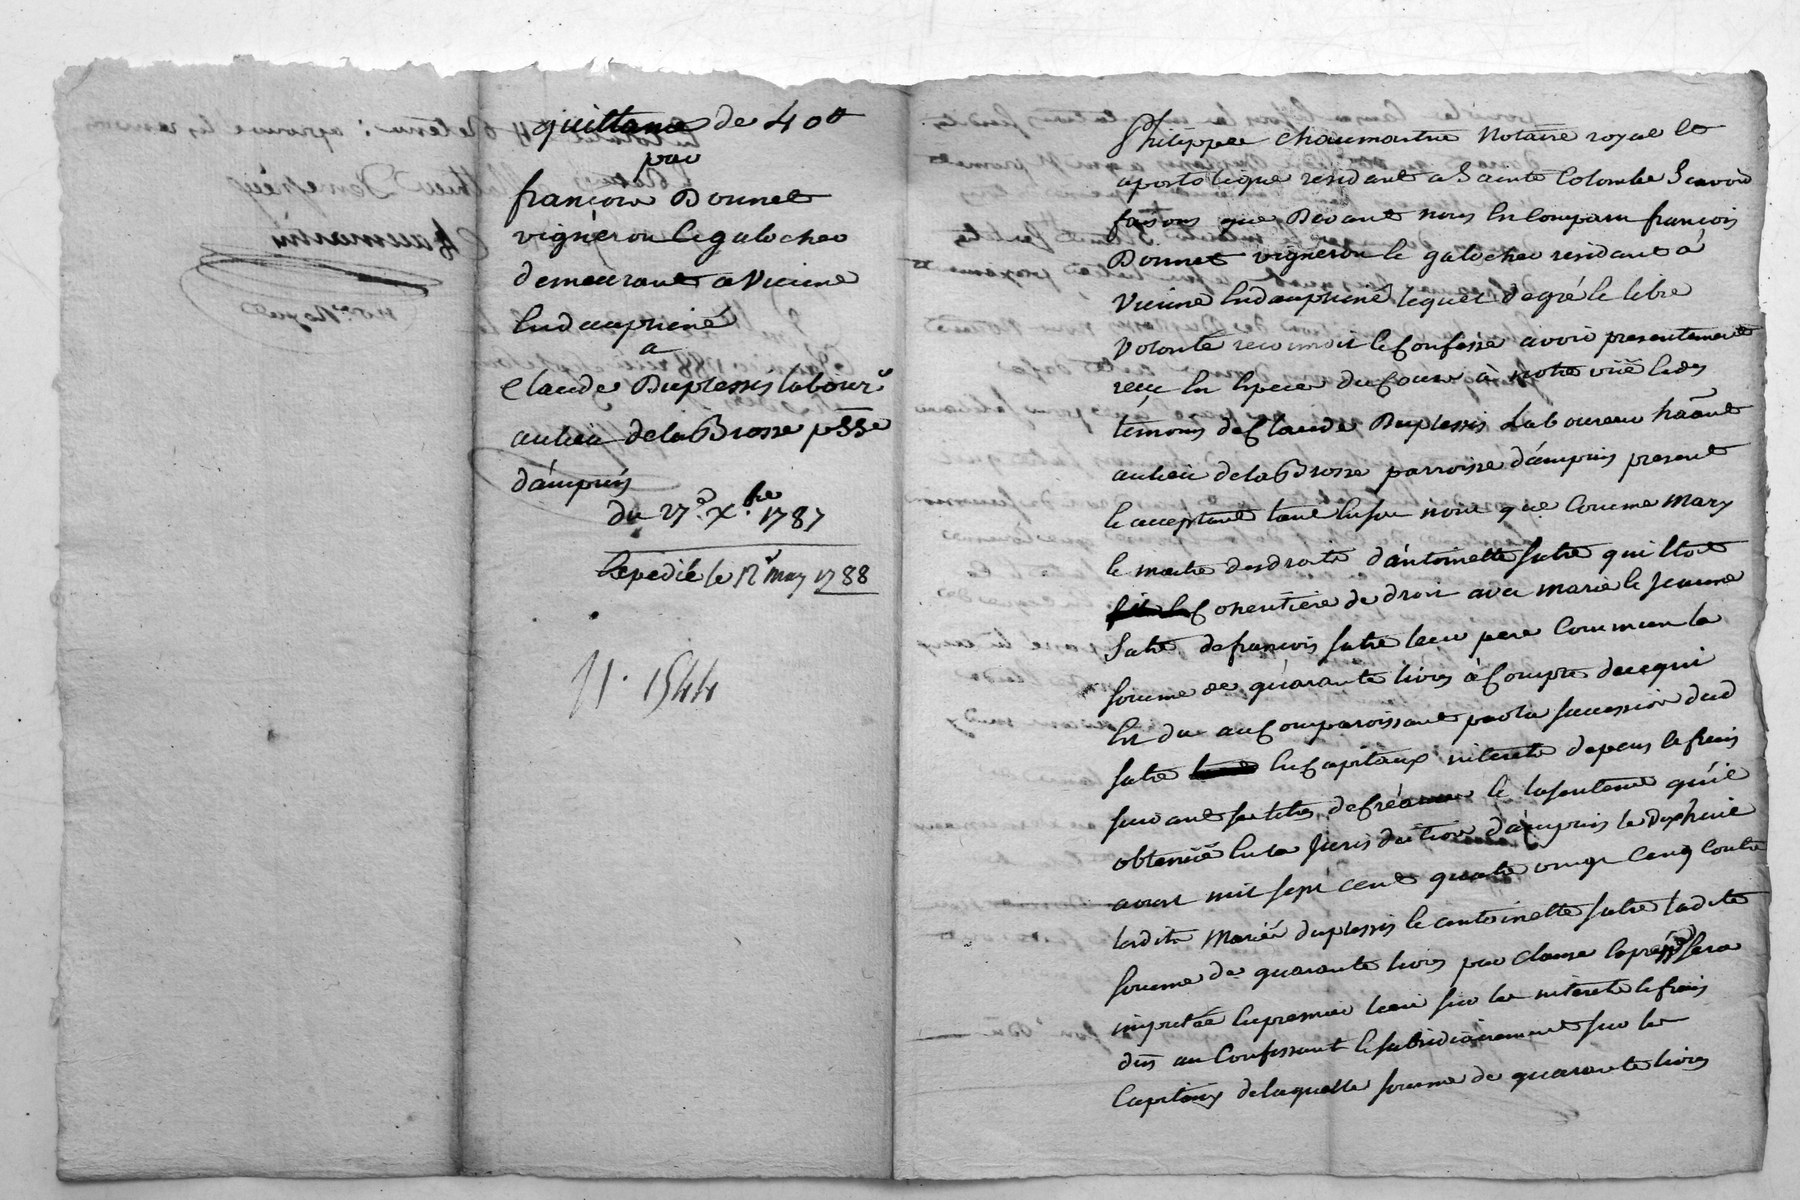 quittance de 40 ₶
par
françois Donnet
vigneron & galocher
demeurant a Vienne
En dauphiné
a
Claude Duplessis labour.r
au lieu de la Brosse psse
d'ampuis
du 27.e X.bre 1787
Expedié le 12 may 1788
11. 1544
Philippe Chaumartin Notaire royal Et
apostolique residant a Sainte Colombe Scavoir
faisons que Devant nous Est Comparu françois
Donnet vigneron & galocher residant a
Vienne En dauphiné lequel de gré & libre
Volonté reconnoit & Confesse avoir presentement
reçu En Espece du Cours à notre vüe & des
témoins de Claude Duplessis Laboureur hãnt
au lieu de la Brosse parroisse d'ampuis present
& acceptant tant En son nom que Comme Mary
& maitre des droits d'antoinette satre qui Etoit
Coheritiere de droit avec marie & Jeanne
Satre de françois satre leur pere Commun la
somme de quarante livres à Compte de ce qui
Est du au Comparoissant par la succession dud
satre En Capitaux interets depens & frais
suivant ses titres de Créance & la sentence qu'il
obtenüe En la Jurisdiction d'ampuis le dixhuit
avril mil sept Cent quatre vingt Cinq Contre
lesdits Mariés duplessis & antoinette satre ladite
somme de quarante livres par Clause Expresse sera
imputée En premier lieu sur les interets & frais
dûs au Confessant & subsidiairement sur les
Capitaux de laquelle somme de quarante livres